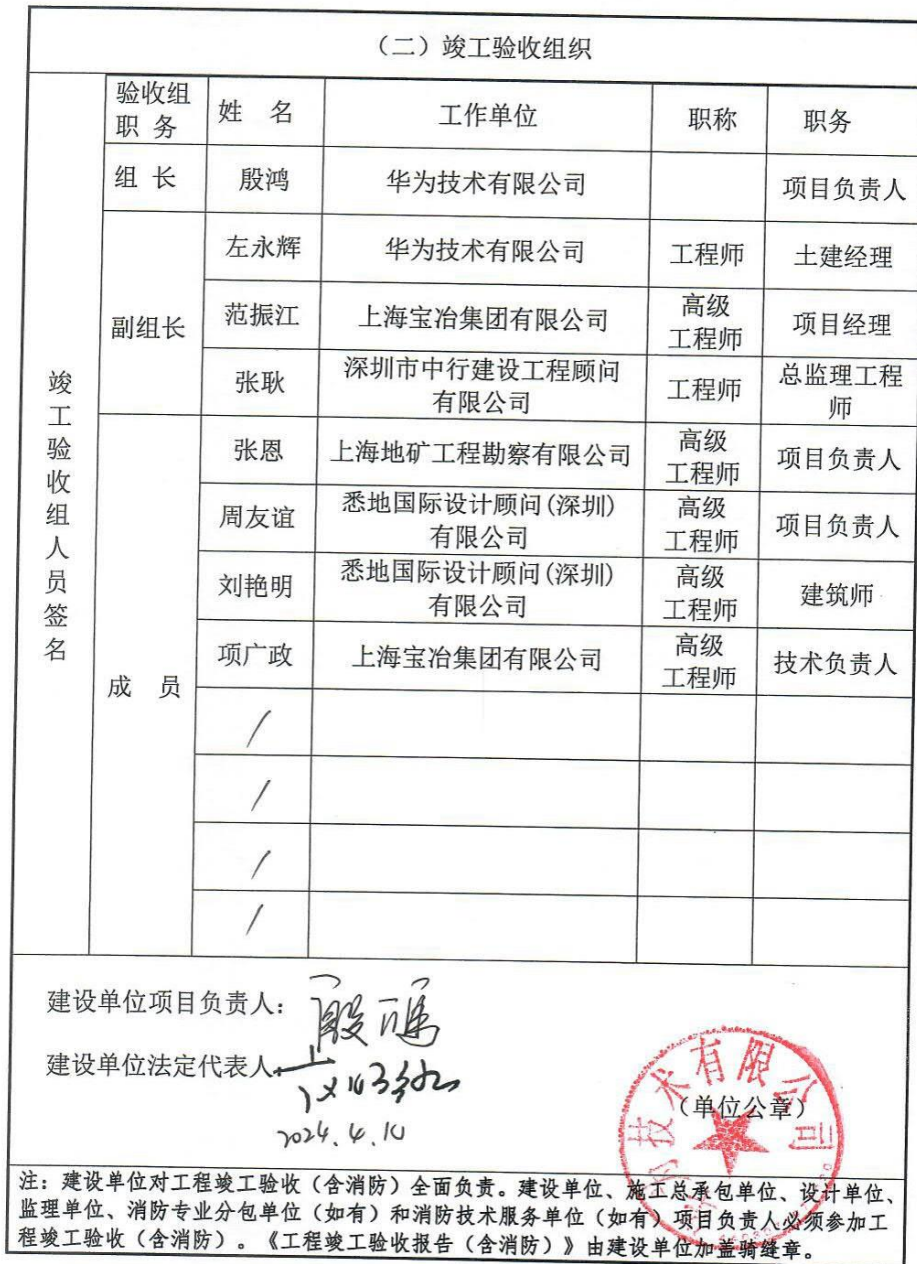 （二）竣工验收组织
竣工验收组人员签名
验收组职 务 姓 名 工作单位 职称 职务
组 长 殷鸿 华为技术有限公司 项目负责人
副组长
左永辉 华为技术有限公司 工程师 土建经理
范振江 上海宝冶集团有限公司 高级工程师 项目经理
张耿 深圳市中行建设工程顾问有限公司 工程师 总监理工程师
成 员
张恩 上海地矿工程勘察有限公司 高级工程师 项目负责人
周友谊 悉地国际设计顾问(深圳)有限公司 高级工程师 项目负责人
刘艳明 悉地国际设计顾问(深圳)有限公司 高级工程师 建筑师
项广政 上海宝冶集团有限公司 高级工程师 技术负责人
/
/
/
/
建设单位项目负责人：殷鸿
建设单位法定代表人
2024.4.10
技术有限公司
（单位公章）
注：建设单位对工程竣工验收（含消防）全面负责。建设单位、施工总承包单位、设计单位、
监理单位、消防专业分包单位（如有）和消防技术服务单位（如有）项目负责人必须参加工
程竣工验收（含消防）。《工程竣工验收报告（含消防）》由建设单位加盖骑缝章。